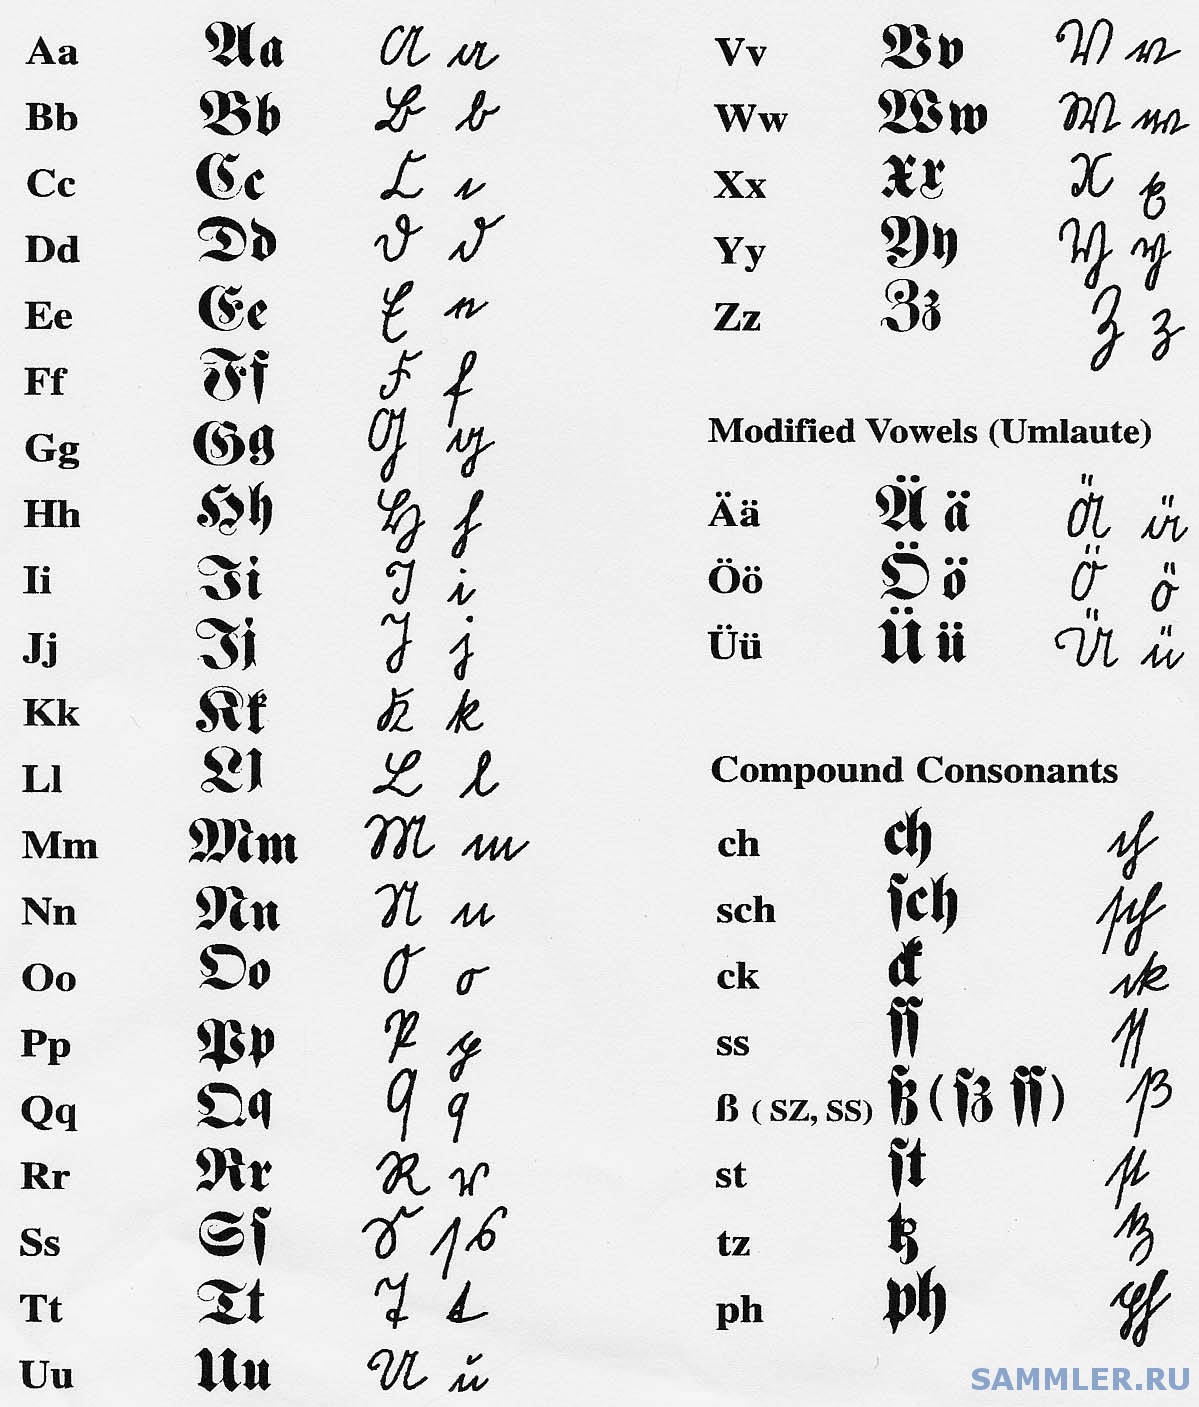 Aa Aa A a
Bb Bb B b
Cc Cc C c
Dd Dd D d
Ee Ee E e
Ff Ff F f
Gg Gg G g
Hh Hh H h
Ii Ii I i
Jj Jj J j
Kk Kk K k
Ll Ll L l
Mm Mm M m
Nn Nn N n
Oo Oo O o
Pp Pp P p
Qq Qq Q q
Rr Rr R r
Ss Sſ S ſs
Tt Tt T t
Uu Uu U u
Vv Vv V v
Ww Ww W w
Xx Xx X x
Yy Yy Y y
Zz Zz Z z
Modified Vowels (Umlaute)
Ää Ä ä Ä ä
Öö Ö ö Ö ö
Üü Ü ü Ü ü
Compound Consonants
ch ch ch
sch ſch ſch
ck ck ck
ss ſſ ſſ
ß ( SZ, SS) ß (ſz ſſ) ß
st ſt ſt
tz tz tz
ph ph ph
SAMMLER.RU